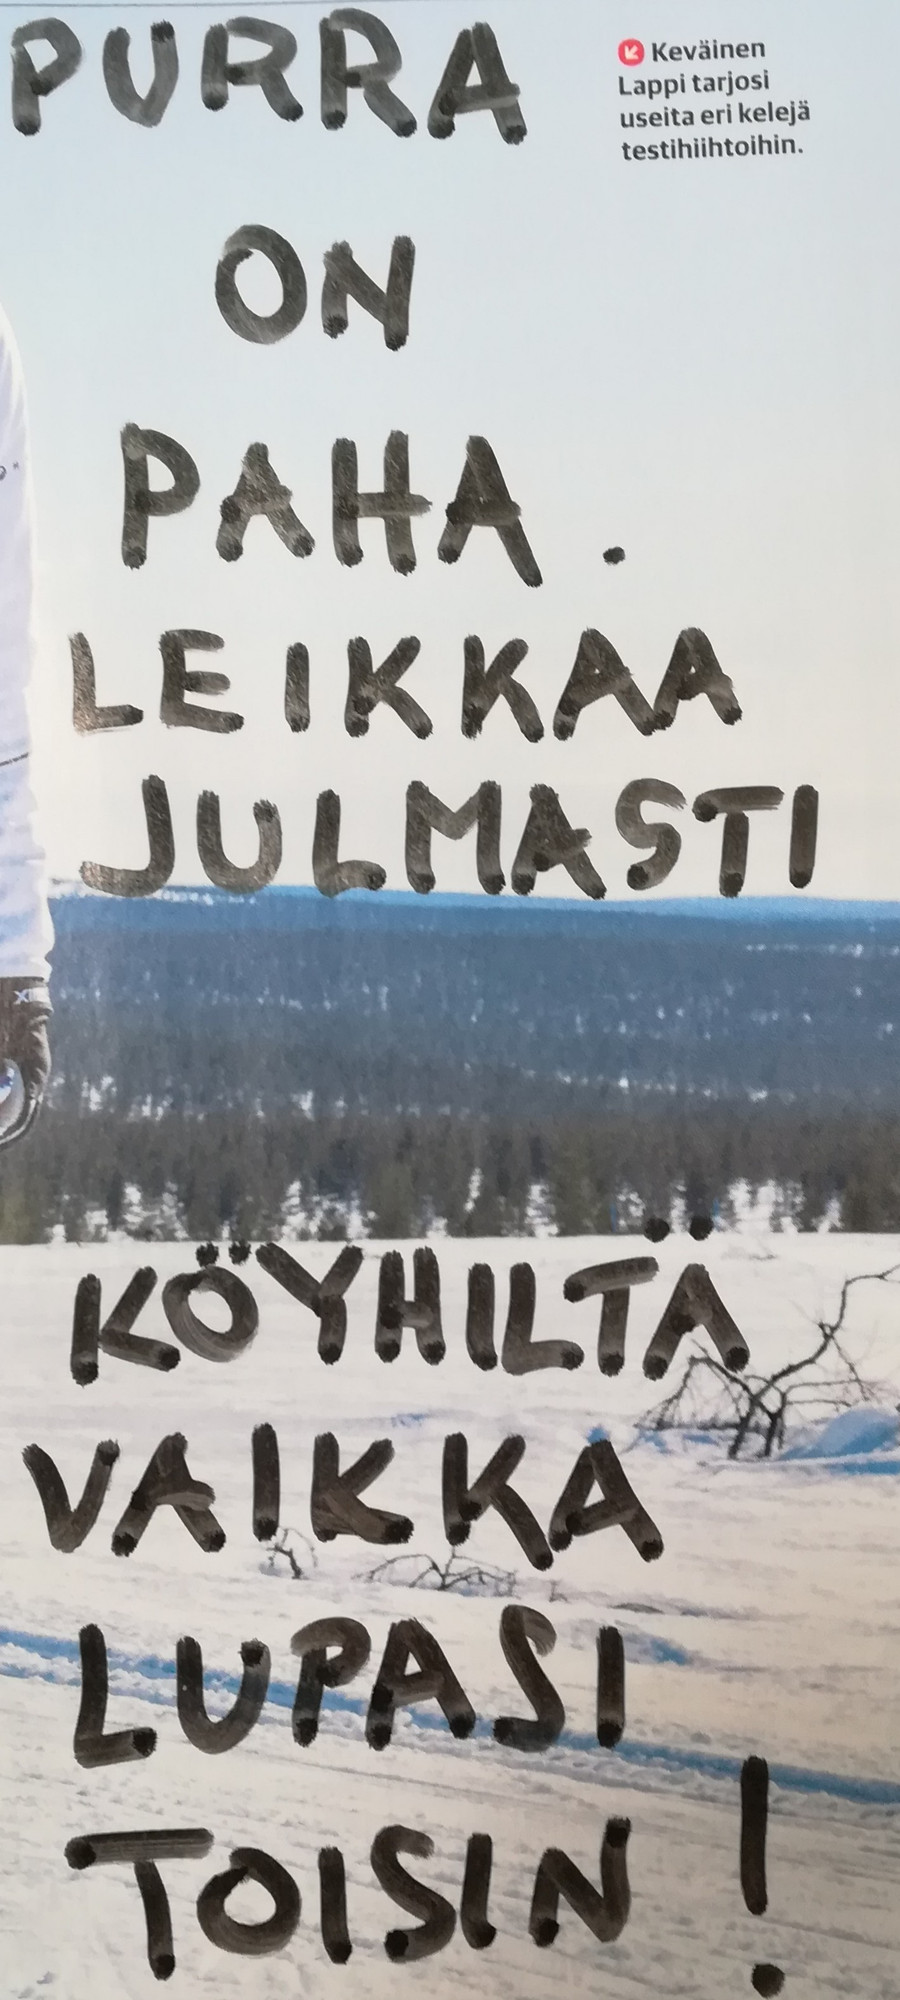 PURRA
ON
PAHA.
LEIKKAA
JULMASTI
KÖYHILTÄ
VAIKKA
LUPASI
TOISIN!
Keväinen
Lappi tarjosi
useita eri kelejä
testihiihtoihin.